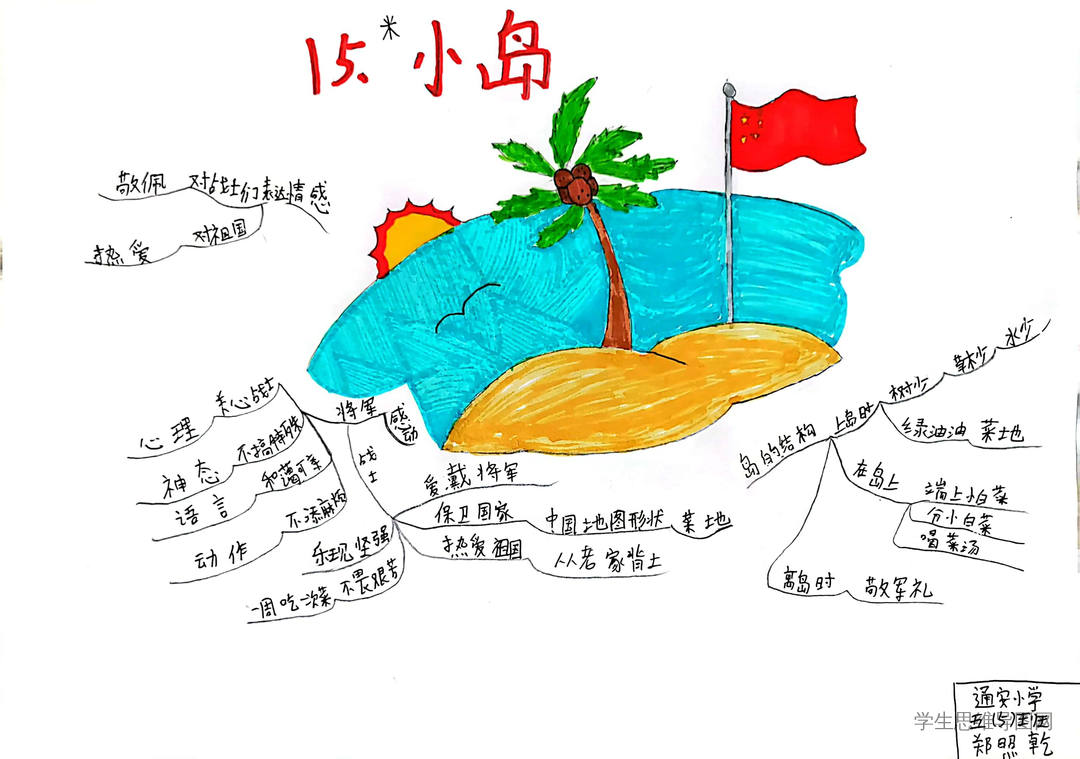 15.*小岛
敬佩
对战士们表达情感
对祖国
热爱
心理
关心战士
神态
不搞特殊
语言
和蔼可亲
动作
不添麻烦
将军
感动
战士
乐观坚强
不畏艰苦
一周吃一次菜
爱戴将军
保卫国家
中国地图形状
菜地
热爱祖国
从老家背土
岛的结构
上岛时
树少
草少
水少
绿油油
菜地
在岛上
端上小白菜
分小白菜
喝菜汤
离岛时
敬军礼
通安小学
五(5)班
郑照乾
学生思维导图网